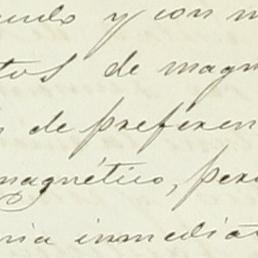 y con m
tos de magn
de preferen
magnético, pero
ria inmediat